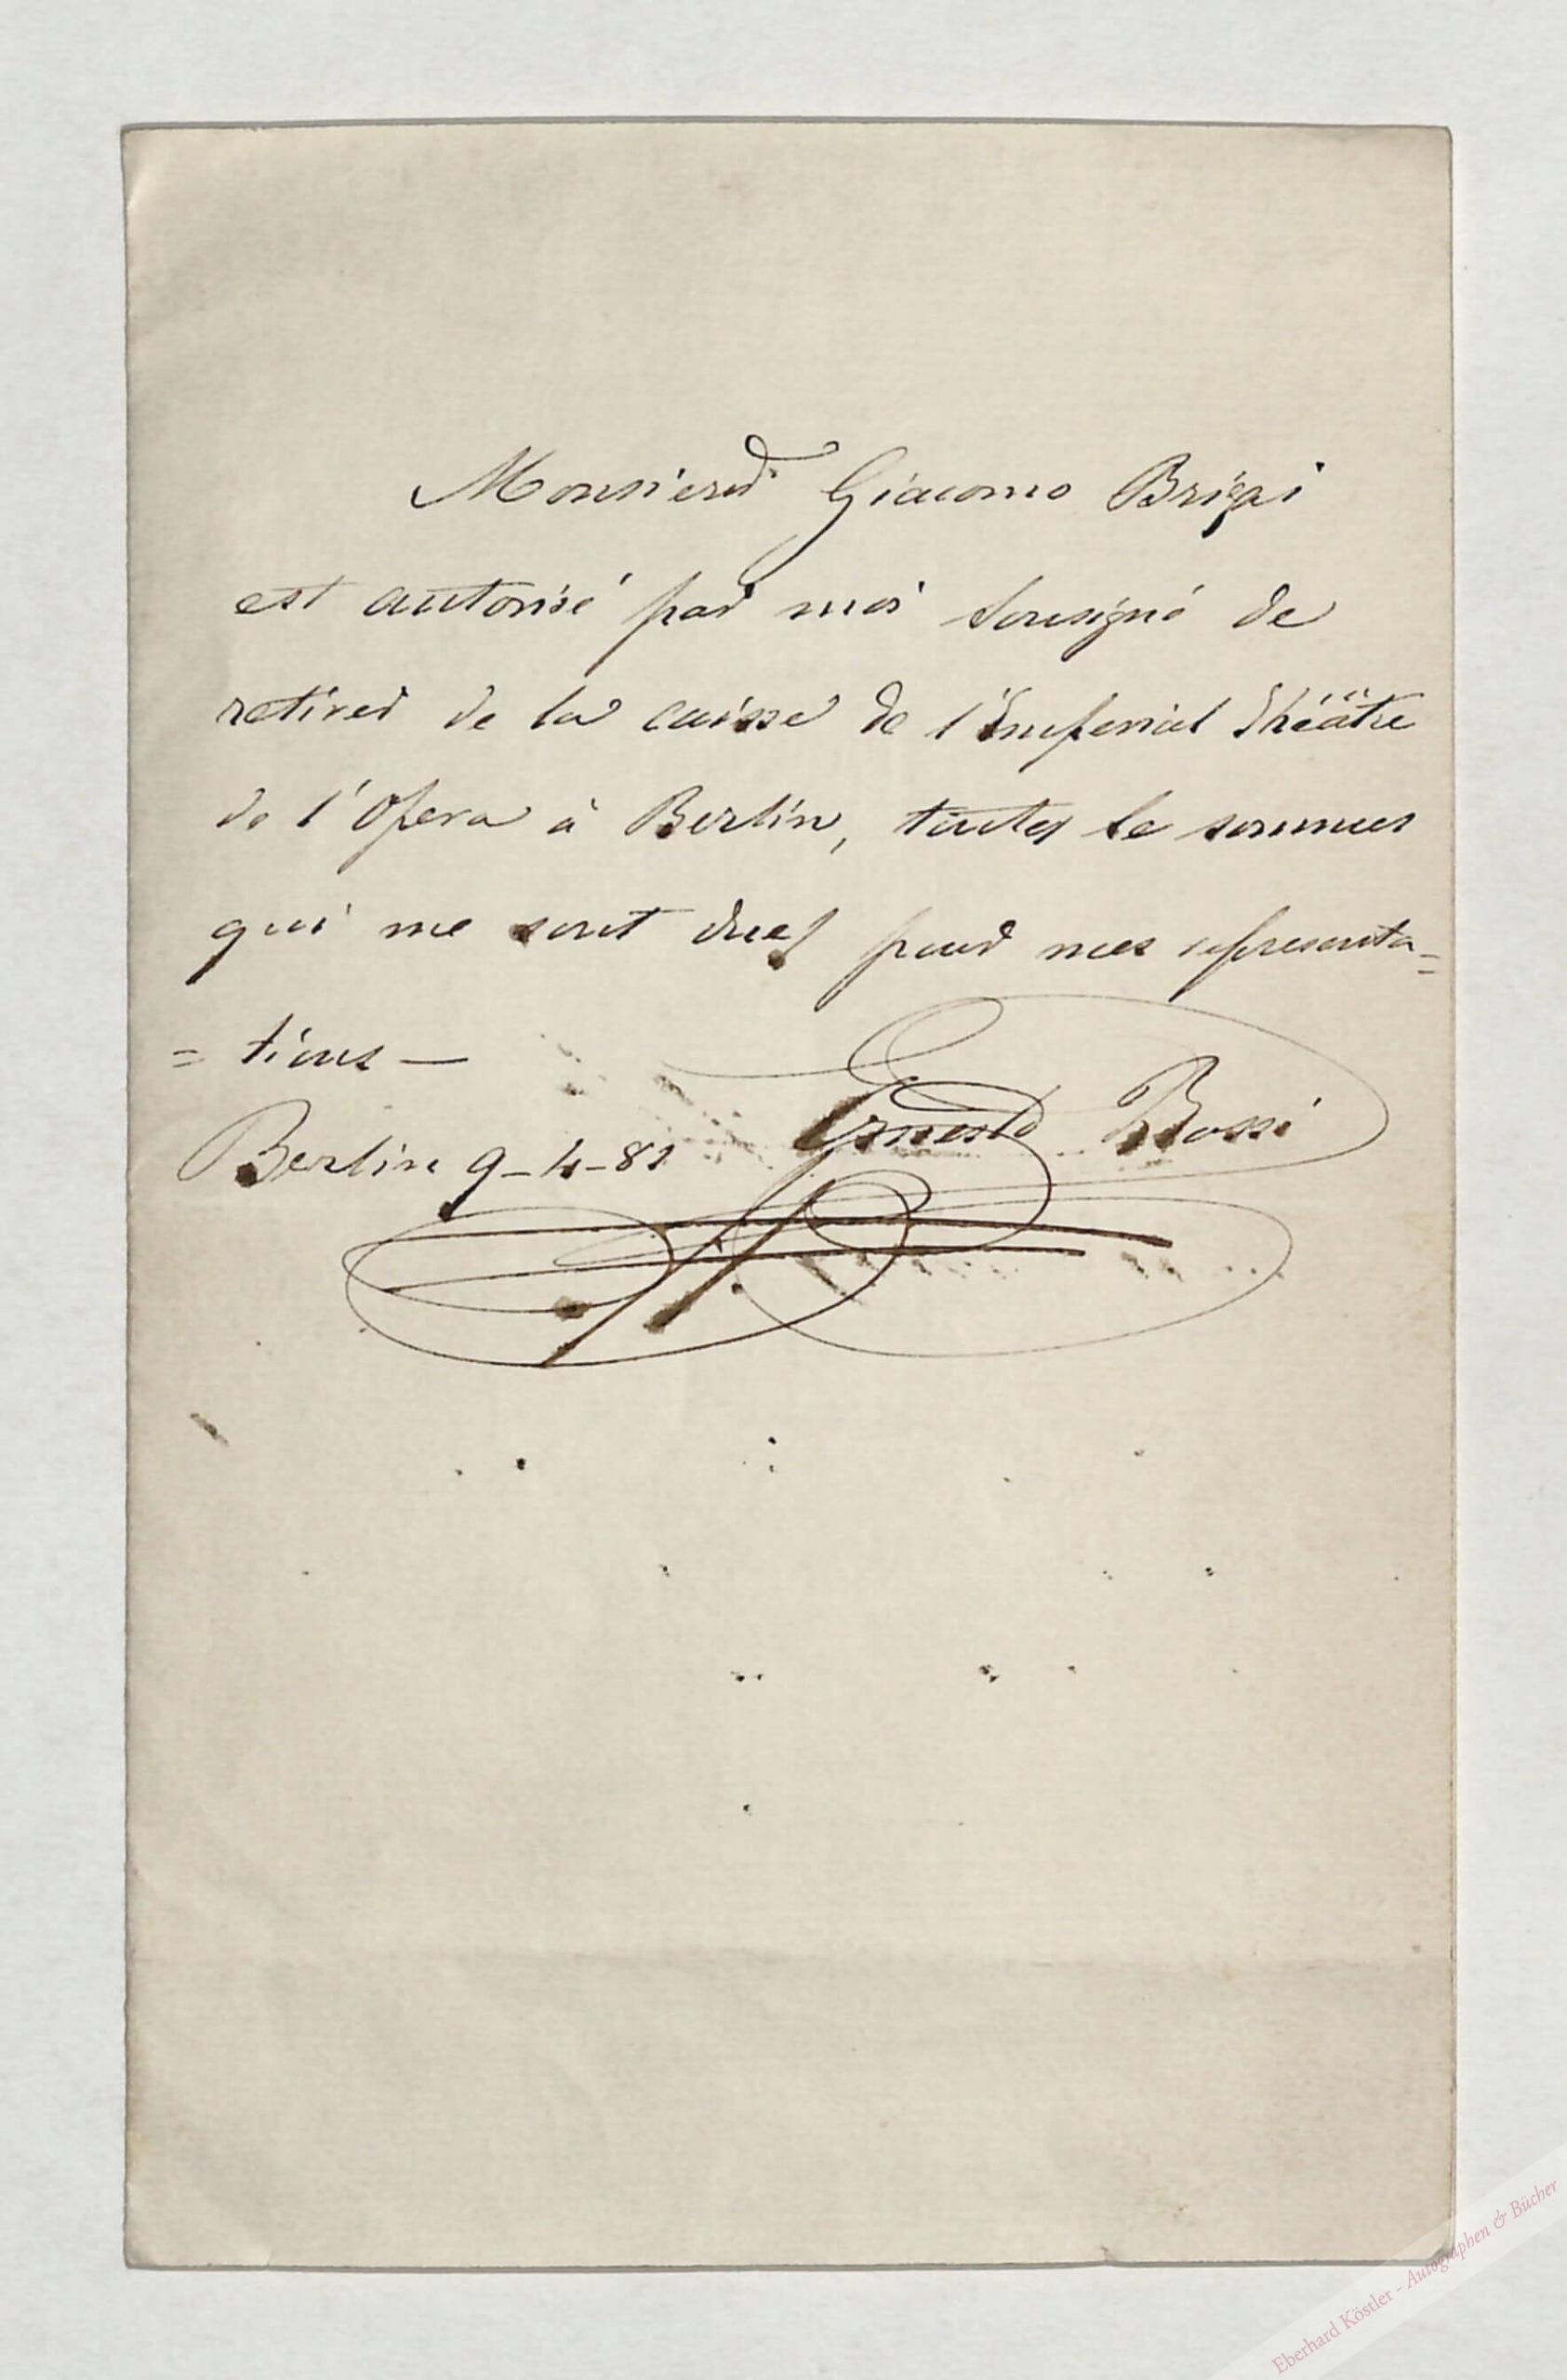 Monsieur Giacomo Brizzi
est autorisé par moi sousigné de
retirer de la caisse de l'Imperial Théâtre
de l'Opera à Berlin, toutes le sommes
qui me sont dues pour mes representa=
= tions —
Ernesto Rossi
Berlin 9-4-81
Eberhard Köstler - Autographen & Bücher